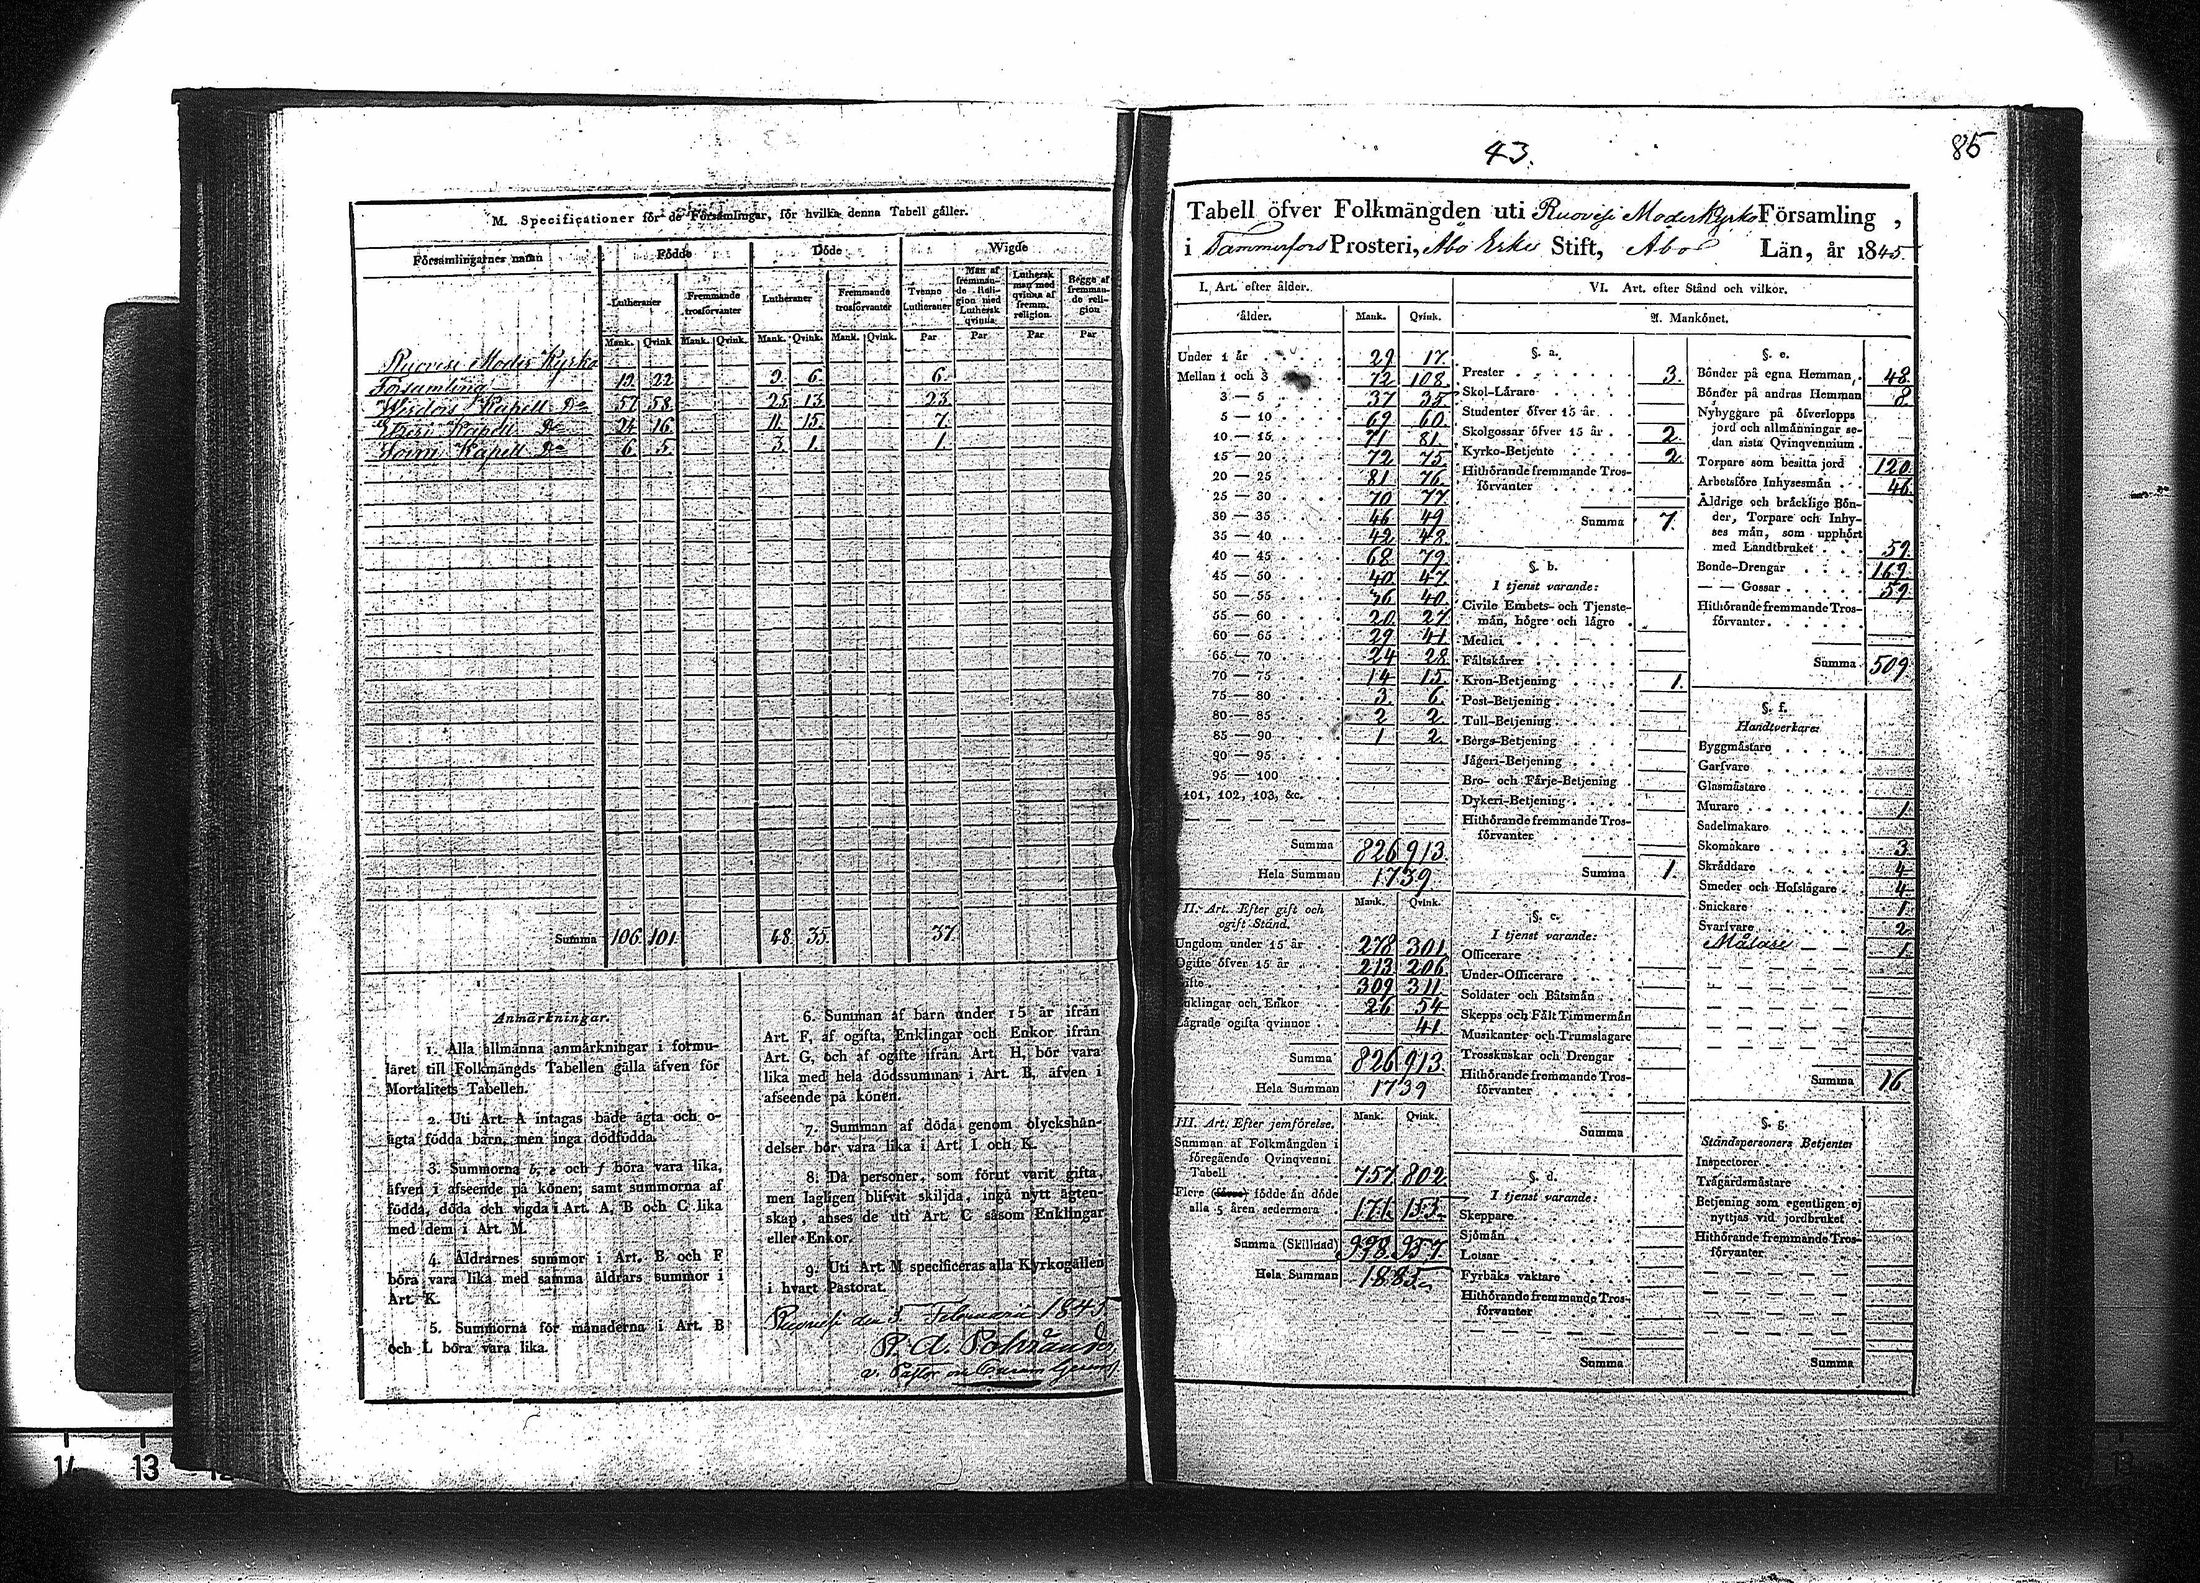 43.
85
M. Specificationer för de Församlingar, för hvilka denna Tabell gäller.
Församlingarnes namn
Födde
Döde
Wigde
Lutheraner
Fremmande trosförvanter
Lutheraner
Fremmande trosförvanter
Tvenne Lutheraner
Man af fremmande Religion med Luthersk qvinna.
Luthersk man med qvinna af fremm. religion.
Begge af fremmande religion
Mank. Qvink. Mank. Qvink. Mank. Qvink. Mank. Qvink. Par Par Par Par
Ruovesi Moder Kyrko
Församling 19 22 9. 6. 6.
Wirdois Kapell Do 57 58 25 13 23
Etseri Kapell Do 24 16 11. 15. 7.
Kapell Do 6 5 3. 1. 1.
Summa 106. 101. 48. 35. 37.
Anmärkningar.
1. Alla allmänna anmärkningar i formu-
läret till Folkmängds Tabellen gälla äfven för
Mortalitets Tabellen.
2. Uti Art. A intagas både ägta och o-
ägta födda barn, men inga dödfödda.
3. Summorna b, e och f böra vara lika,
äfven i afseende på könen; samt summorna af
födda, döda och vigda i Art. A, B och C lika
med dem i Art. M.
4. Åldrarnes summor i Art. B och F
böra vara lika med samma åldrars summor i
Art. K.
5. Summorna för månaderna i Art. B
och L böra vara lika.
6. Summan af barn under 15 år ifrån
Art. F, af ogifta, Enklingar och Enkor ifrån
Art. G, och af ogifte ifrån Art. H, bör vara
lika med hela dödssumman i Art. B, äfven i
afseende på könen.
7. Summan af döda genom olyckshän-
delser bör vara lika i Art. I och K.
8. Då personer, som förut varit gifta,
men lagligen blifvit skiljda, ingå nytt ägten-
skap, anses de uti Art. C såsom Enklingar
eller Enkor.
9. Uti Art. M specificeras alla Kyrkogällen
i hvart Pastorat.
Ruovesi den 5 Februarii 1845
v. Pastor
Tabell öfver Folkmängden uti Ruovesi ModerKyrko Församling,
i Tammerfors Prosteri, Åbo Erke Stift, Åbo Län, år 1845.
I. Art. efter ålder.
ålder. Mank. Qvink.
Under 1 år 29 17.
Mellan 1 och 3 72 108.
3 — 5 37 35
5 — 10 69 60.
10 — 15 71 81.
15 — 20 72 75
20 — 25 81 76.
25 — 30 70 77
30 — 35 46 49
35 — 40 42 48.
40 — 45 68 79.
45 — 50 40 47.
50 — 55 36 40.
55 — 60 20 27
60 — 65 29 41.
65 — 70 24 28.
70 — 75 14 15.
75 — 80 3. 6.
80 — 85 2 2.
85 — 90 1 2.
90 — 95
95 — 100
101, 102, 103, &c.
Summa 826 913.
Hela Summan 1739.
II. Art. Efter gift och ogift Stånd. Mank. Qvink.
Ungdom under 15 år 278 301.
Ogifte öfver 15 år 213 206
Gifte 309 311.
Enklingar och Enkor 26 54
Lägrade ogifta qvinnor 41
Summa 826 913.
Hela Summan 1739
III. Art. Efter jemförelse. Mank. Qvink.
Summan af Folkmängden i
föregående Qvinqvenni
Tabell 757 802.
Flere födde än döde
alla 5 åren sedermera 171. 155.
Summa (Skillnad) 928. 957.
Hela Summan 1885.
VI. Art. efter Stånd och vilkor.
A. Mankönet.
§. a.
Prester 3.
Skol-Lärare
Studenter öfver 15 år
Skolgossar öfver 15 år 2.
Kyrko-Betjente 2
Hithörande fremmande Tros-
förvanter
Summa 7.
§. b.
I tjenst varande:
Civile Embets- och Tjenste-
män, högre och lägre
Medici
Fältskärer
Kron-Betjening 1.
Post-Betjening
Tull-Betjening
Bergs-Betjening
Jägeri-Betjening
Bro- och Färje-Betjening
Dykeri-Betjening
Hithörande fremmande Tros-
förvanter
Summa 1.
§. c.
I tjenst varande:
Officerare
Under-Officerare
Soldater och Båtsmän
Skepps och Fält Timmermän
Musikanter och Trumslagare
Trosskuskar och Drengar
Hithörande fremmande Tros-
förvanter
Summa
§. d.
I tjenst varande:
Skeppare
Sjömän
Lotsar
Fyrbåks vaktare
Hithörande fremmande Tros-
förvanter
Summa
§. e.
Bönder på egna Hemman 48.
Bönder på andras Hemman 8.
Nybyggare på öfverlopps
jord och allmänningar se-
dan sista Qvinqvennium
Torpare som besitta jord 120.
Arbetsföre Inhysesmän 46.
Åldrige och bräcklige Bön-
der, Torpare och Inhy-
ses män, som upphört
med Landtbruket 59.
Bonde-Drengar 169.
— — Gossar 59
Hithörande fremmande Tros-
förvanter
Summa 509.
§. f.
Handtverkare:
Byggmästare
Garfvare
Glasmästare
Murare 1.
Sadelmakare
Skomakare 3.
Skräddare 4.
Smeder och Hofslagare 4
Snickare 1.
Svarfvare 2.
Målare 1.
Summa 16.
§. g.
Ståndspersoners Betjente:
Inspectorer
Trägårdsmästare
Betjening som egentligen ej
nyttjas vid jordbruket
Hithörande fremmande Tros-
förvanter
Summa
14 13